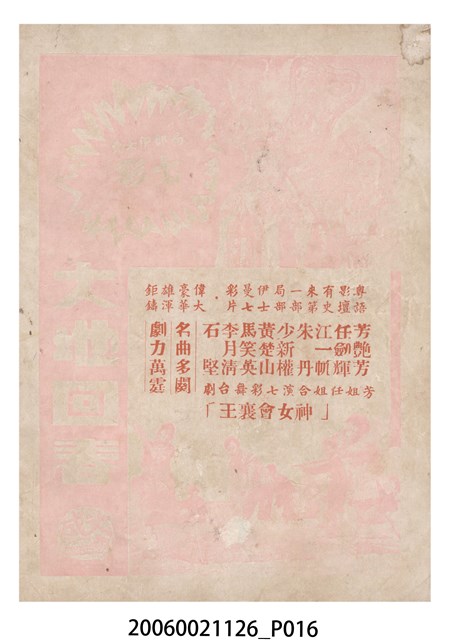 粵語影壇有史來第一部局部伊士曼七彩片
偉大豪華雄渾鉅鑄
芳艷芬
任劍輝
江一帆
朱丹
少新權
黃楚山
馬笑英
李月清
石堅
名曲多闋
劇力萬霆
芳姐任姐合演七彩舞台劇
「神女會襄王」
大地回春
20060021126_P016